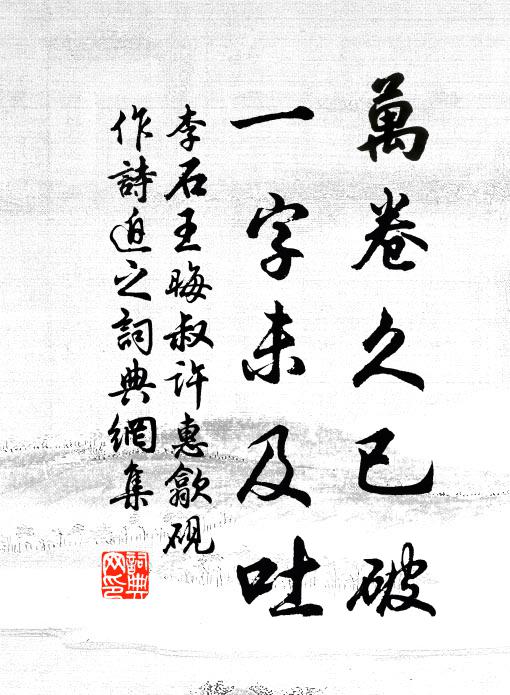 萬卷久已破
一字未及吐
李石王晦叔許惠歙硯
作詩迫之詞典網集
詞典網印